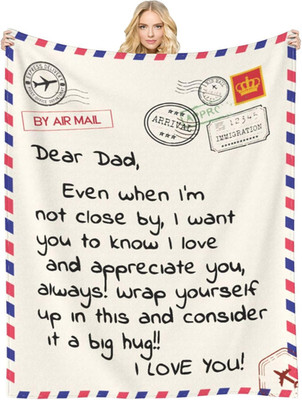 BY AIR MAIL
ARRIVAL
12345
IMMIGRATION
Dear Dad,
Even when i'm
not close by, I want
you to know I love
and appreciate you,
always! wrap yourself
up in this and consider
it a big hug!!
I LOVE YOU!